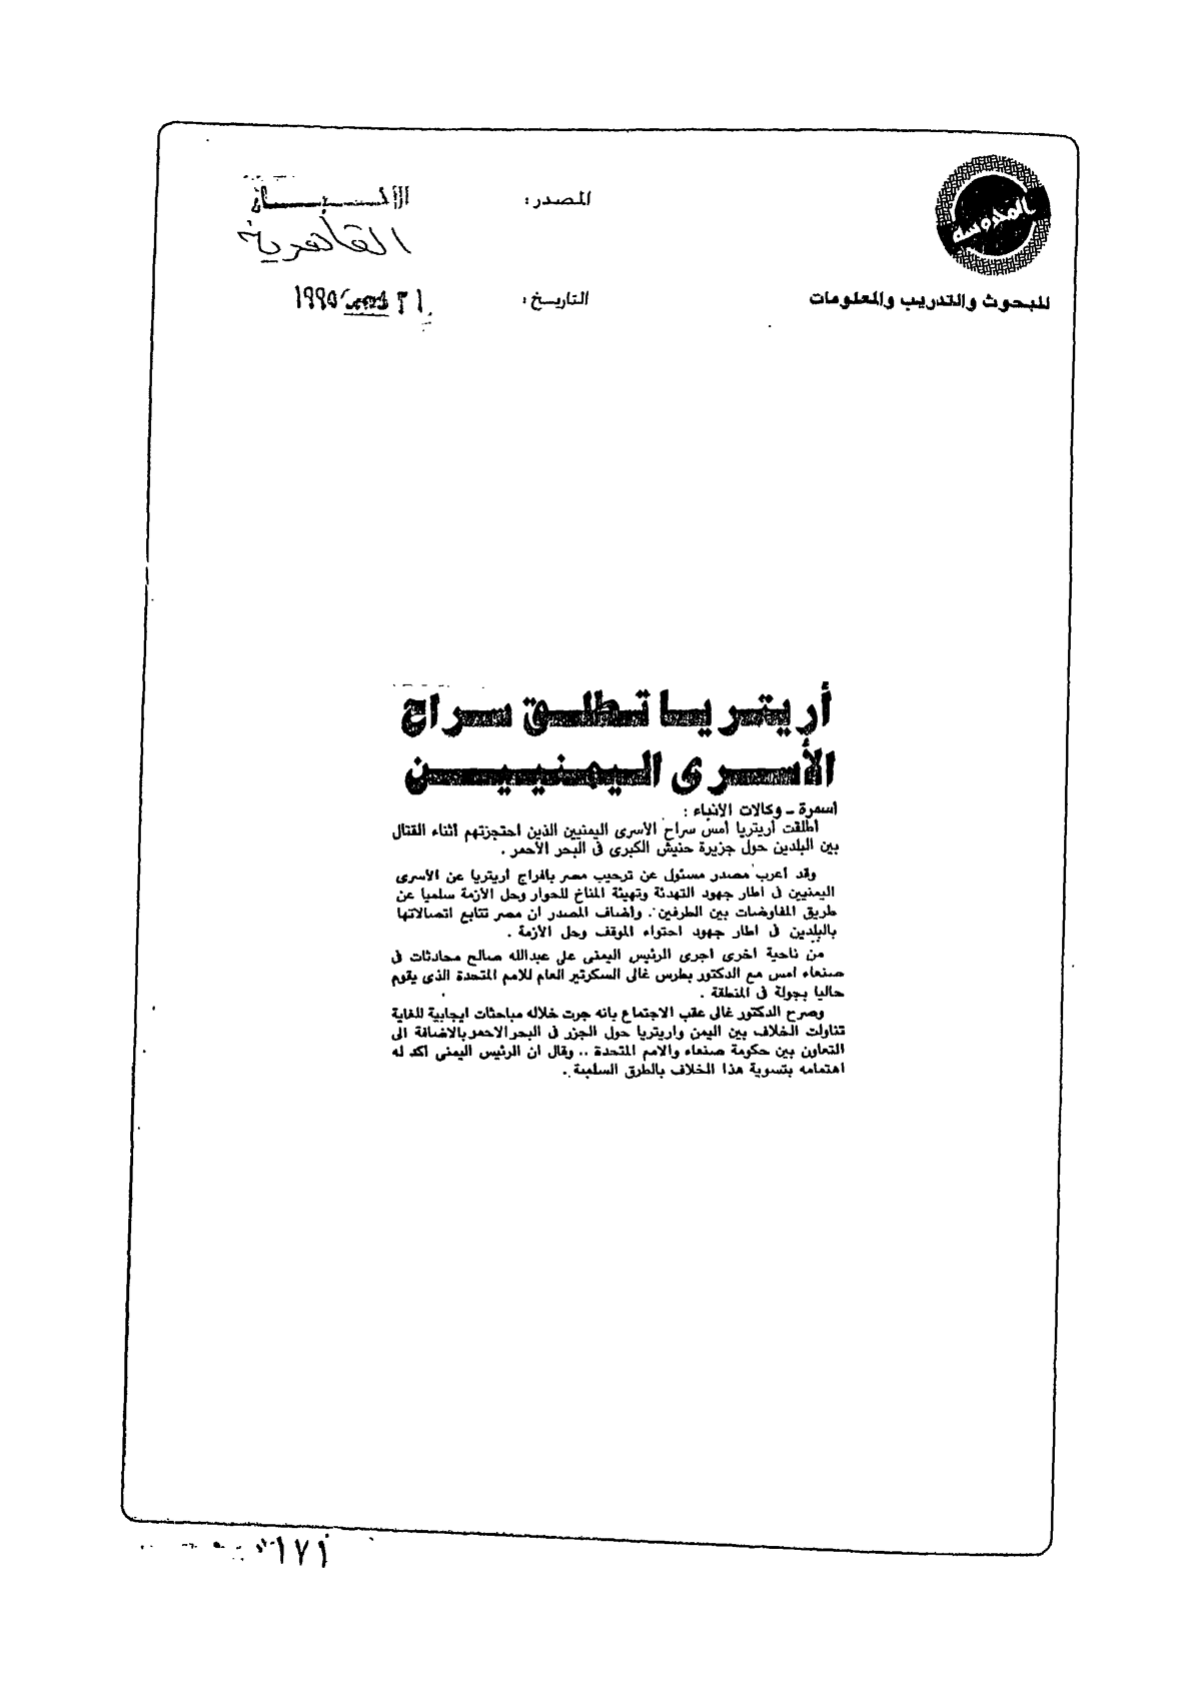 المدوسه
للبحوث والتدريب والمعلومات
المصدر :
القاهرية
التاريخ :
٣١ ١٩٩٥
أريتريا تطلق سراح
الأسرى اليمنيين
اسمرة ــ وكالات الانباء :
اطلقت أريتريا أمس سراح الأسرى اليمنيين الذين احتجزتهم أثناء القتال
بين البلدين حول جزيرة حنيش الكبرى فى البحر الأحمر .
وقد أعرب مصدر مسئول عن ترحيب مصر بافراج أريتريا عن الأسرى
اليمنيين فى اطار جهود التهدئة وتهيئة المناخ للحوار وحل الأزمة سلميا عن
طريق المفاوضات بين الطرفين . وأضاف المصدر ان مصر تتابع اتصالاتها
بالبلدين فى اطار جهود احتواء الموقف وحل الأزمة .
من ناحية اخرى اجرى الرئيس اليمنى على عبدالله صالح محادثات فى
صنعاء امس مع الدكتور بطرس غالى السكرتير العام للامم المتحدة الذى يقوم
حاليا بجولة فى المنطقة .
وصرح الدكتور غالى عقب الاجتماع بانه جرت خلاله مباحثات ايجابية للغاية
تناولت الخلاف بين اليمن واريتريا حول الجزر فى البحر الاحمر بالاضافة الى
التعاون بين حكومة صنعاء والامم المتحدة .. وقال ان الرئيس اليمنى اكد له
اهتمامه بتسوية هذا الخلاف بالطرق السلمية .
١٧١